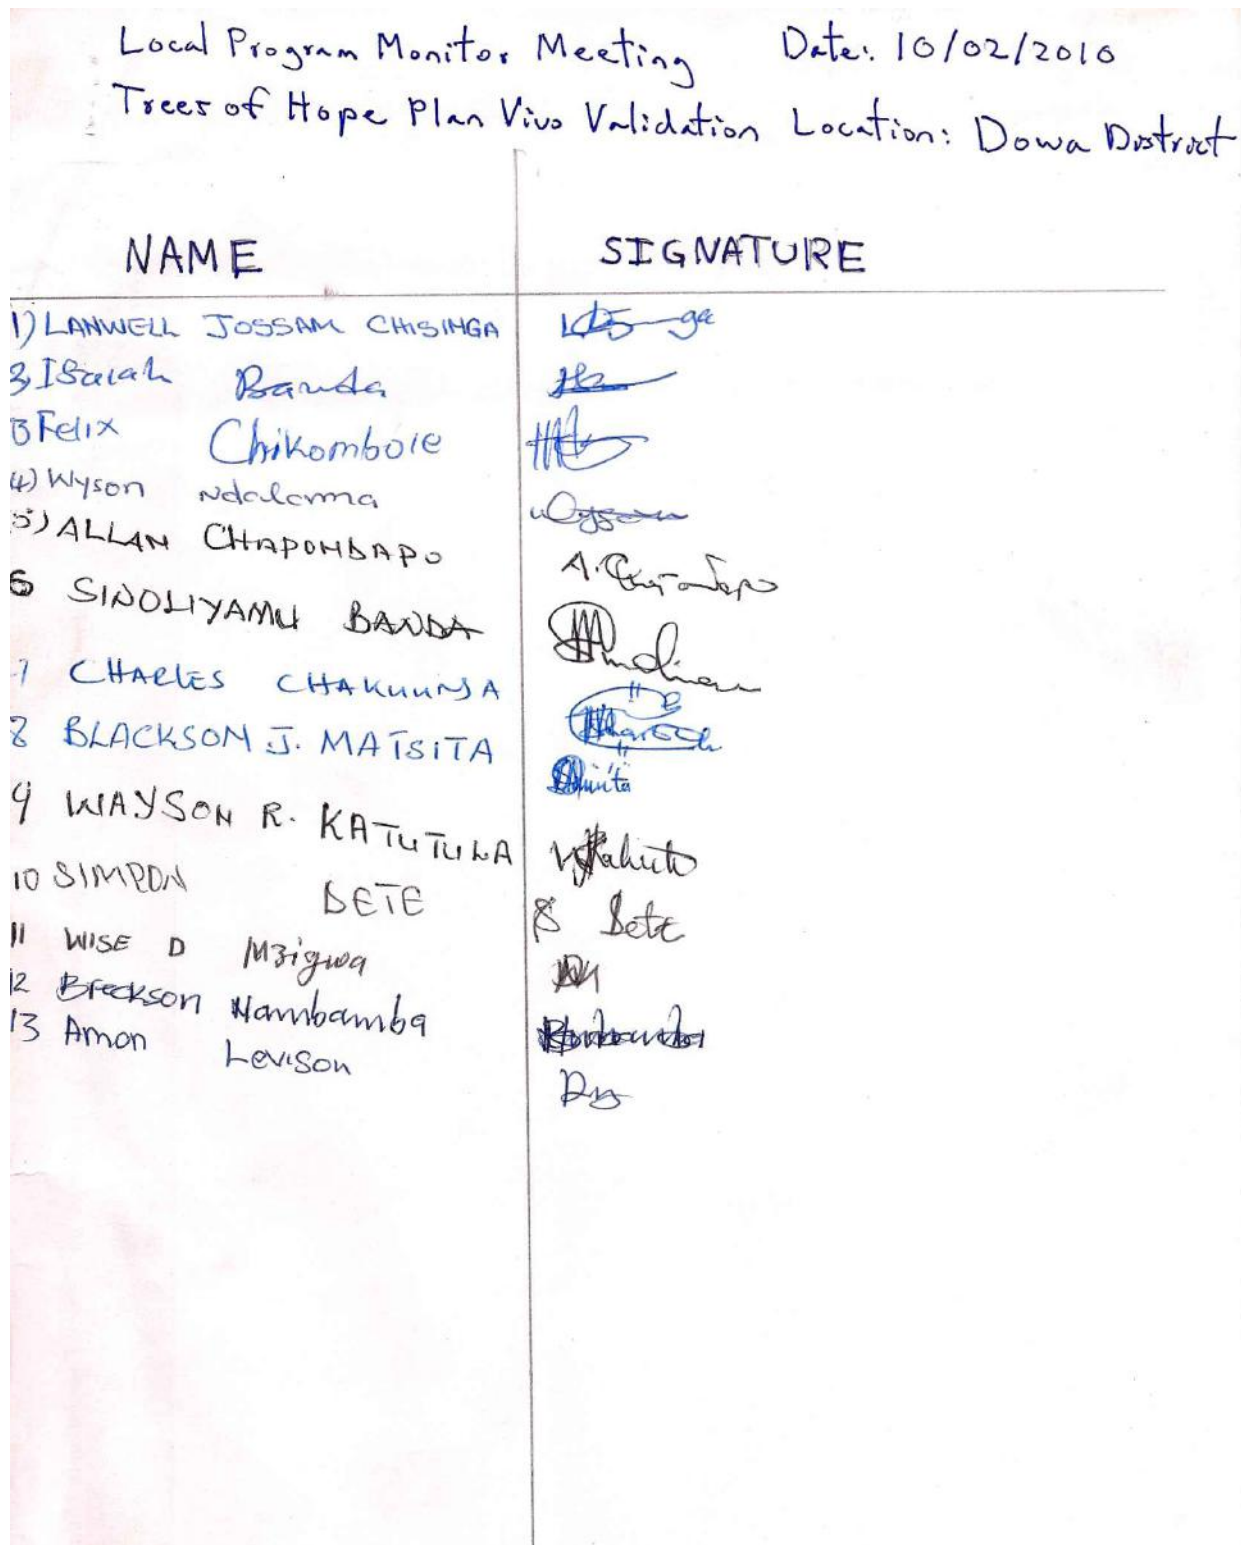 Local Program Monitor Meeting Date: 10/02/2010
Trees of Hope Plan Vivo Validation Location: Dowa District
NAME SIGNATURE
1) LANWELL JOSSAM CHISINGA
2, Isaiah Banda
3 Felix Chikombole
4) Wyson Ndalama
5) ALLAN CHAPOMBAPO
6 SINOLIYAMU BANDA
7 CHARLES CHAKUUNSA
8 BLACKSON J. MATSITA
9 WAYSON R. KATUTULA
10 SIMPON BETE S Bete
11 WISE D Mzigwa
12 Breckson Nambamba
13 Amon Levison